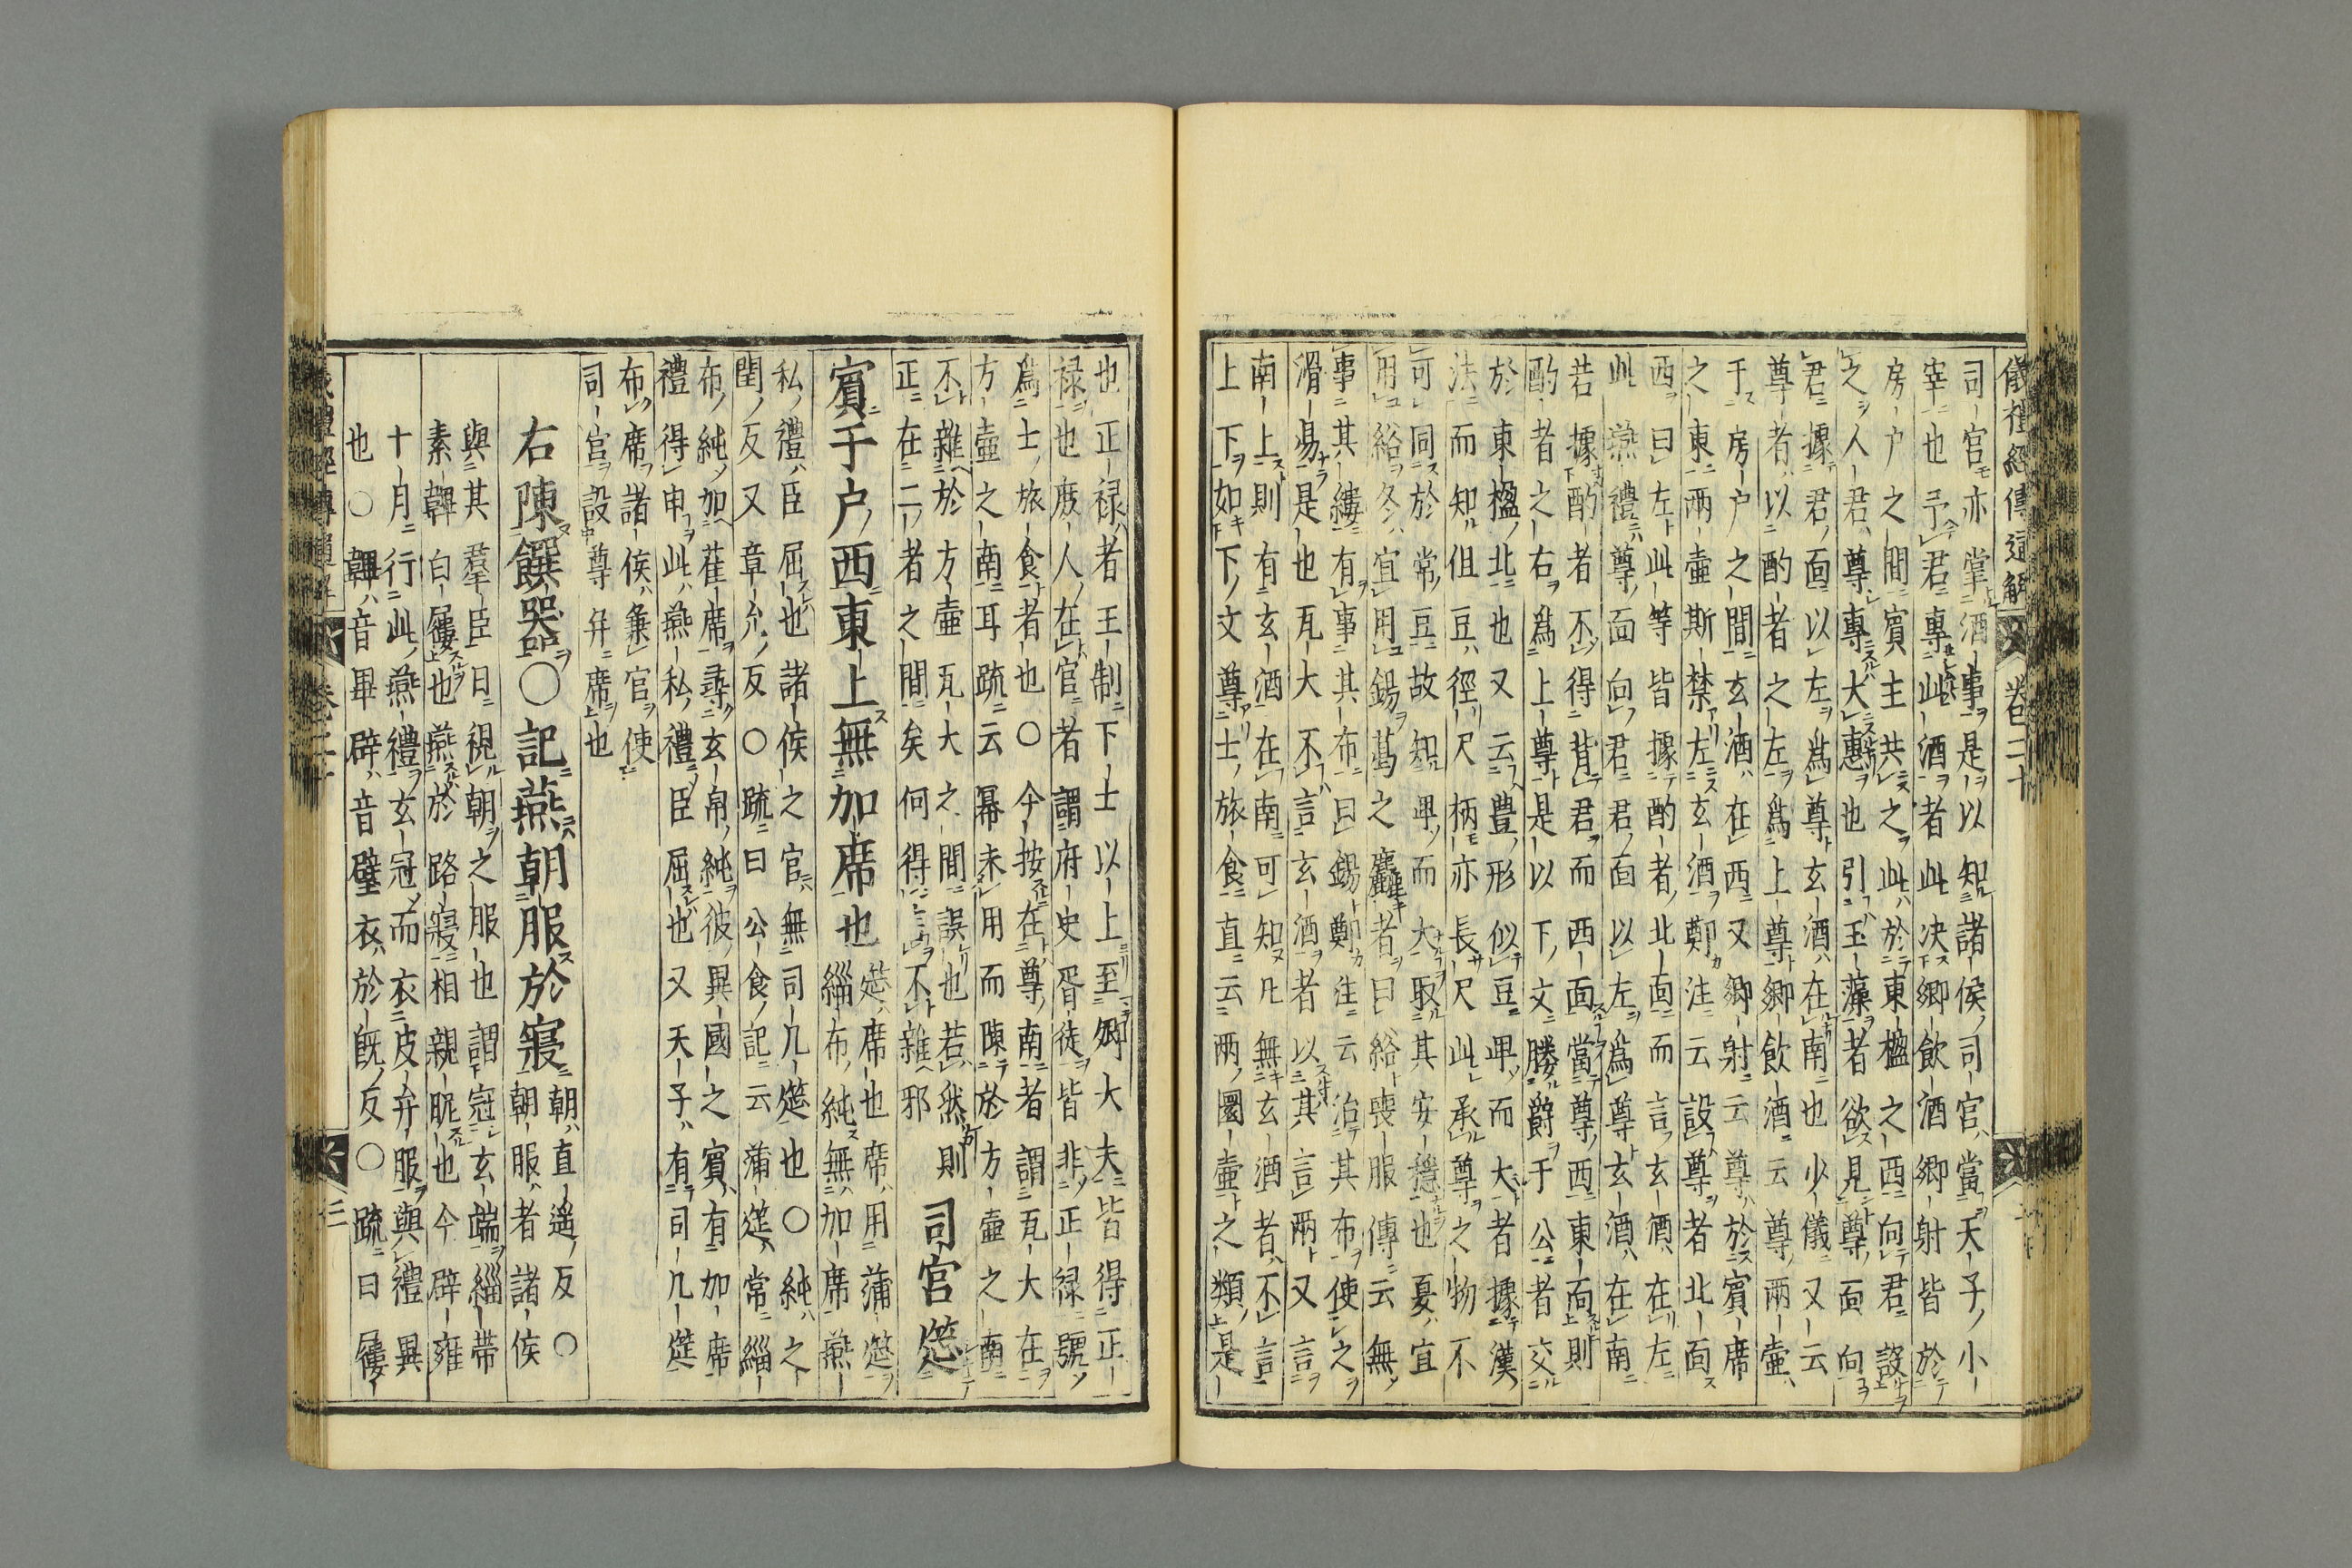 儀禮經傳通解 卷二十
司官亦掌酒事是以知諸侯司官當天子小
宰也予君專此酒者此决鄉飲酒鄉射皆於
房户之間賓主共之此於東楹之西向君設
之人君尊專大惠也引玉藻者欲見尊面向
君據君面以左爲尊玄酒在南也少儀又云
尊者以酌者之左爲上尊鄉飲酒云尊兩壷
于房户之間玄酒在西又鄉射云尊於賓席
之東兩壷斯禁左玄酒鄭注云設尊者北面
西曰左此等皆據酌者北面而言玄酒在左
此燕禮尊面向君君面以左爲尊玄酒在南
若據酌者不得背君而西面當尊西東面則
酌者之右爲上尊是以下文媵爵于公者交
於東楹北也又云豊形似豆卑而大者據漢
法而知但豆徑尺柄亦長尺此承尊之物不
可同於常豆故知卑而大取其安穩也夏宜
用綌冬宜用錫葛之麤者曰綌喪服傳云無
事其縷有事其布曰錫鄭注云治其布使之
滑易是也瓦大不言玄酒者以其言兩又言
南上則有玄酒在南可知凡無玄酒者不言
上下如下文尊士旅食直云兩圜壷之類是
也正禄者王制下士以上至卿大夫皆得正
禄也庶人在官者謂府史胥徒皆非正禄號
爲士旅食者也○今按在尊南者謂瓦大在
方壷之南耳疏云幂未用而陳於方壷之南
不雜於方壷瓦大之間誤也若然則
正在二者之間矣何得言不雜邪 司宮筵
賓于户西東上無加席也 筵席也席用蒲筵
緇布純無加席燕
私禮臣屈也諸侯之官無司几筵也○純之
閏反又章允反○疏曰公食記云蒲筵常緇
布純加萑席尋玄帛純彼異國之賓有加席
禮得申此燕私禮臣屈也又天子有司几筵
布席諸侯兼官使
司宮設尊并席也
右陳饌器○記燕朝服於寢 朝直遥反○
朝服者諸侯
與其羣臣日視朝之服也謂冠玄端緇帶
素韠白屨也燕於路寢相親昵也今辟雍
十月行此燕禮玄冠而衣皮弁服與禮異
也○韠音畢辟音璧衣於既反○疏曰屨